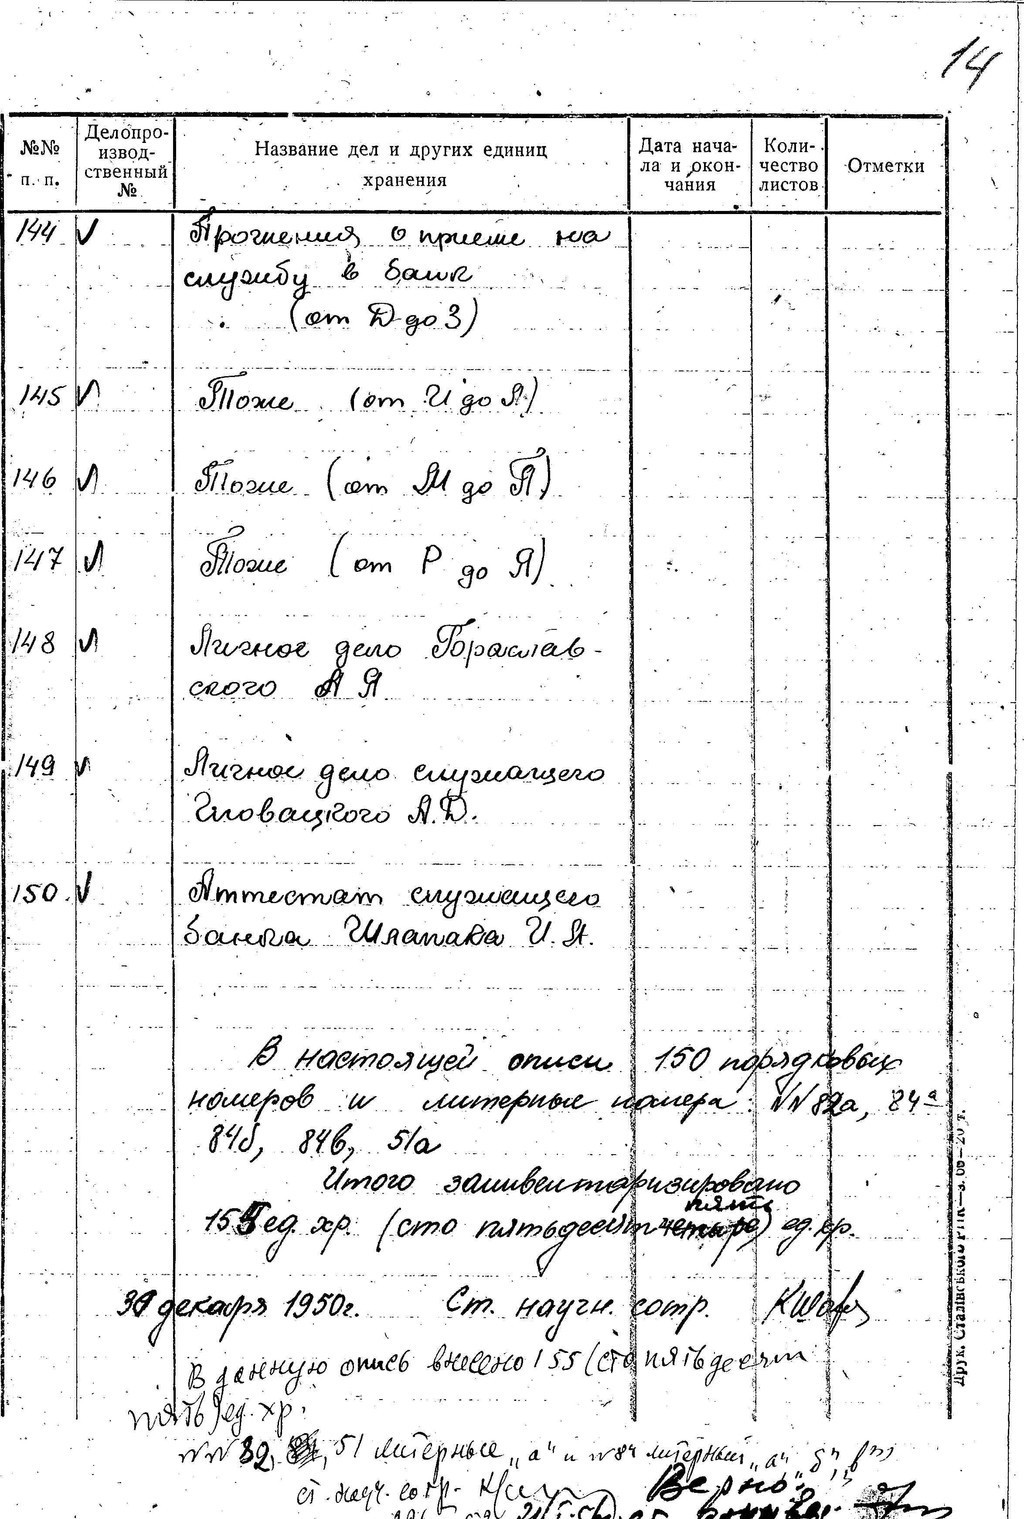 14
№№ п. п.
Делопро-
извод-
ственный
№
Название дел и других единиц
хранения
Дата нача-
ла и окон-
чания
Коли-
чество
листов
Отметки
144 Прошения о приеме на
службу в банк
(от Д до З)
145 Тоже (от И до Л)
146 Тоже (от М до П)
147 Тоже (от Р до Я)
148 Личное дело Гораслав-
ского А Я
149 Личное дело служащего
Гловацкого А.Д.
150 Аттестат служащего
банка Шлапака И. А.
В настоящей описи 150 порядковых
номеров и литерные номера NN 82а, 84а
84б, 84в, 51а
Итого заинвентаризировано
155 ед. хр. (сто пятьдесят пять) ед. хр.
декабря 1950г. Ст. научн. сотр.
В данную опись внесено 155 (сто пятьдесят
пять) ед. хр.
NN 82, 51 литерные „а" и N 84 литерный „а", „б", „в"
ст. науч. сотр.
Верно:
Друк. Сталінського